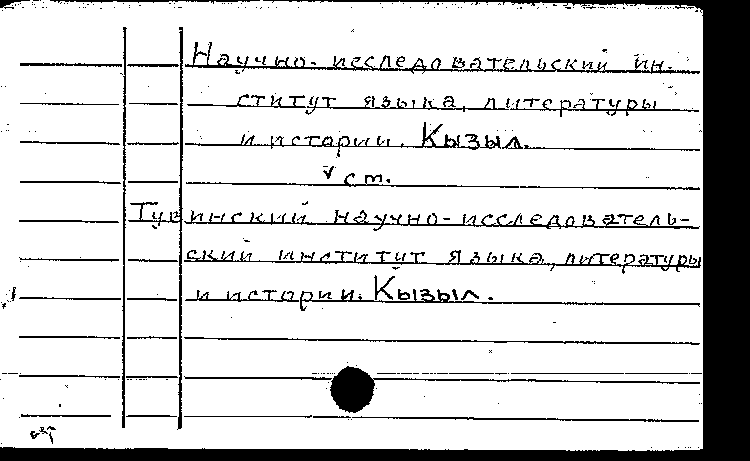 Научно-исследовательский ин-
ститут языка, литературы
и истории. Кызыл.
см.
Тувинский научно-исследователь-
ский институт языка, литературы
и истории. Кызыл.